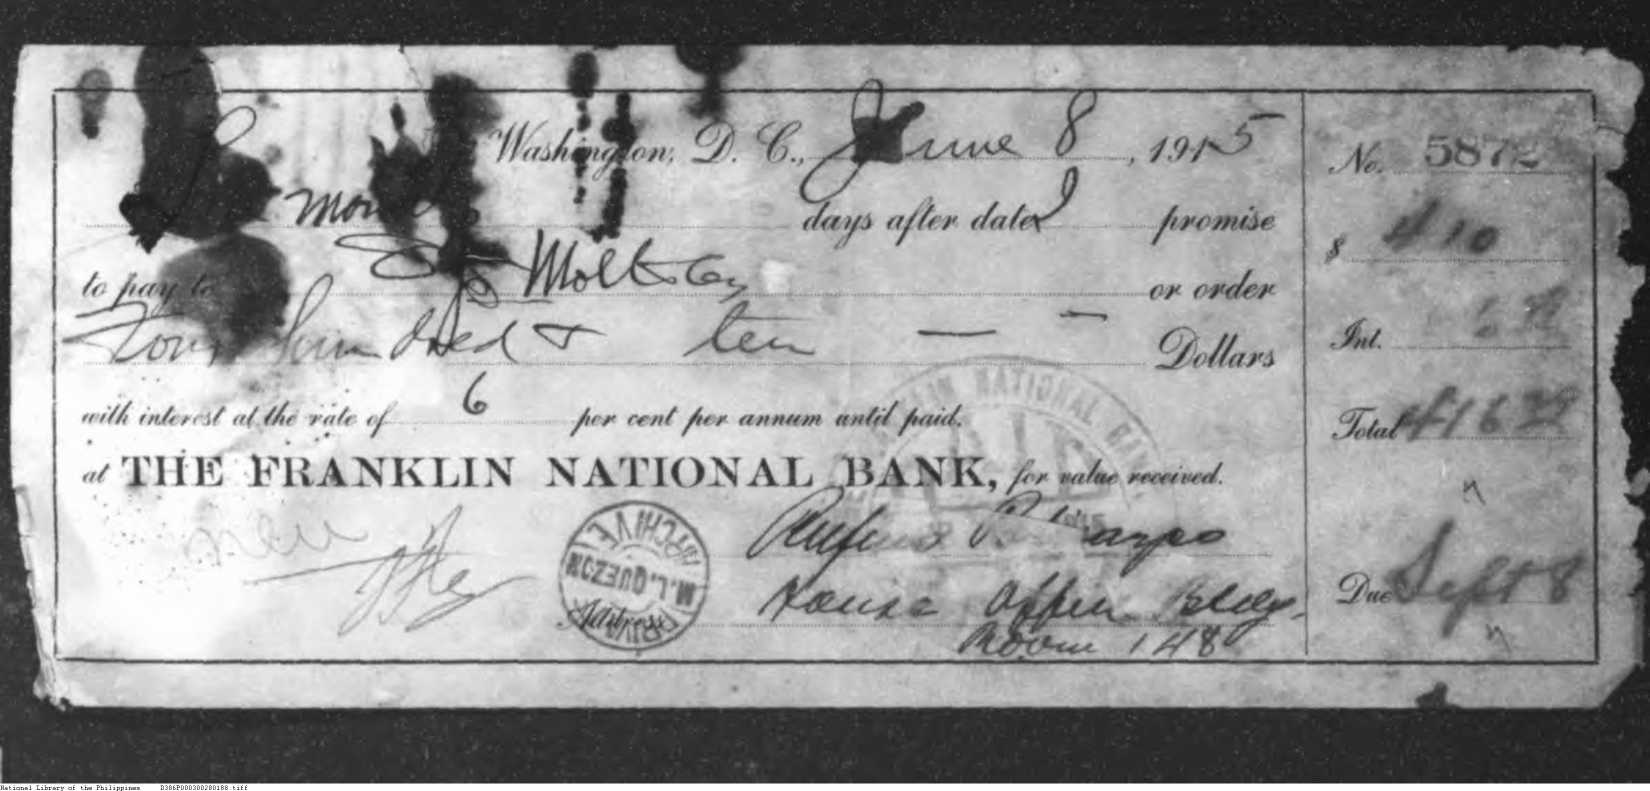 Washington, D. C., June 8, 1915
No. 5872
months days after date I promise
$ 410
to pay to or order
Four hundred & ten — — Dollars
Int.
with interest at the rate of 6 per cent per annum until paid.
Total 416
at THE FRANKLIN NATIONAL BANK, for value received.
NATIONAL BANK
PAID
new
M. L. QUEZON
PRIVATE ARCHIVE
Rufino
Due Sept 8
Address House Office Bldg.
Room 148
National Library of the Philippines D386P000300280188.tiff